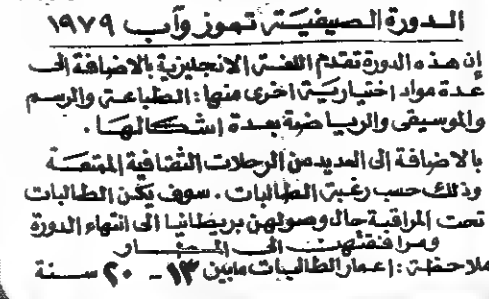 الدورة الصيفية تموز وآب ١٩٧٩
إن هذه الدورة تقدم اللغة الانجليزية بالاضافة الى
عدة مواد اختيارية اخرى منها: الطباعة والرسم
والموسيقى والرياضة بعدة اشكالها.
بالاضافة الى العديد من الرحلات الثقافية الممتعة
وذلك حسب رغبة الطالبات. سوف يكن الطالبات
تحت المراقبة حال وصولهن بريطانيا الى انتهاء الدورة
ومرافقتهن الى المطار
ملاحظة: اعمار الطالبات مابين ١٣ - ٢٠ سنة